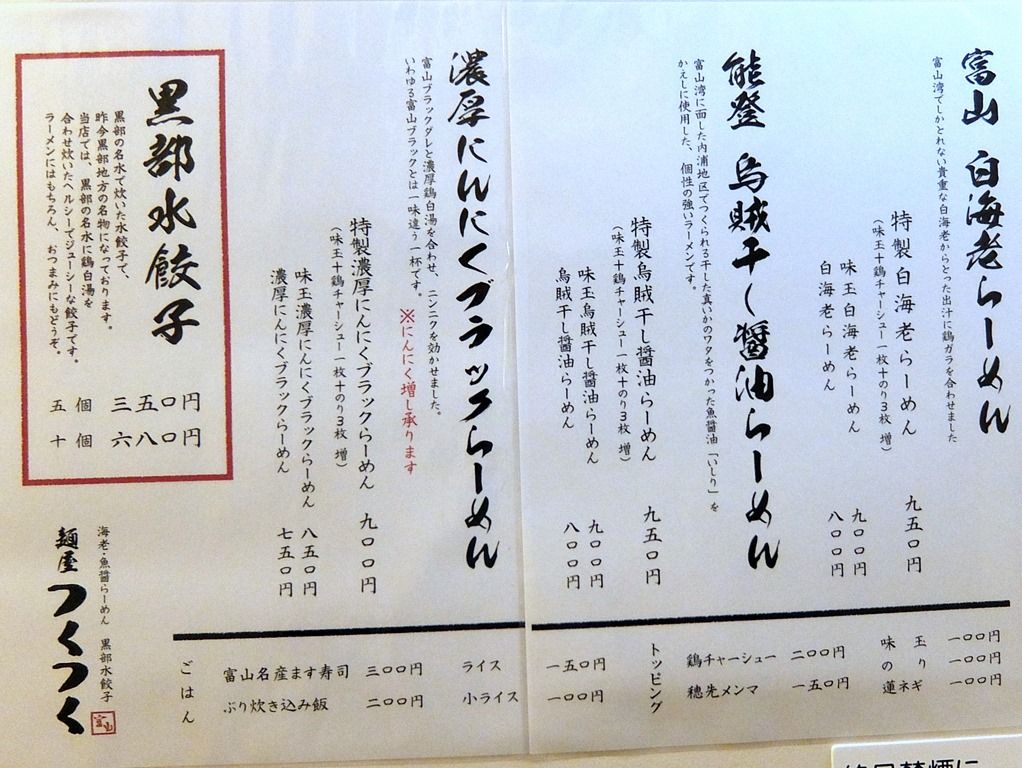 富山 白海老らーめん
富山湾でしかとれない貴重な白海老からとった出汁に鶏ガラを合わせました
特製白海老らーめん 九五〇円
(味玉十鶏チャーシュー一枚十のり3枚 増)
味玉白海老らーめん 九〇〇円
白海老らーめん 八〇〇円
能登 烏賊干し醤油らーめん
富山湾に面した内浦地区でつくられる干した真いかのワタをつかった魚醤油「いしり」を
かえしに使用した、個性の強いラーメンです。
特製烏賊干し醤油らーめん 九五〇円
(味玉十鶏チャーシュー一枚十のり3枚 増)
味玉烏賊干し醤油らーめん 九〇〇円
烏賊干し醤油らーめん 八〇〇円
濃厚にんにくブラックらーめん
富山ブラックダレと濃厚鶏白湯を合わせ、ニンニクを効かせました。
いわゆる富山ブラックとは一味違う一杯です。
※にんにく増し承ります
特製濃厚にんにくブラックらーめん 九〇〇円
(味玉十鶏チャーシュー一枚十のり3枚 増)
味玉濃厚にんにくブラックらーめん 八五〇円
濃厚にんにくブラックらーめん 七五〇円
黒部水餃子
黒部の名水で炊いた水餃子で、
昨今黒部地方の名物になっております。
当店では、黒部の名水に鶏白湯を
合わせ炊いたヘルシーでジューシーな餃子です。
ラーメンにはもちろん、おつまみにもどうぞ。
五個 三五〇円
十個 六八〇円
トッピング
味玉 一〇〇円
のり 一〇〇円
蓮ネギ 一〇〇円
鶏チャーシュー 二〇〇円
穂先メンマ 一五〇円
ごはん
富山名産ます寿司 三〇〇円
ぶり炊き込み飯 二〇〇円
ライス 一五〇円
小ライス 一〇〇円
海老・魚醤らーめん 黒部水餃子
麺屋 つくつく
富山